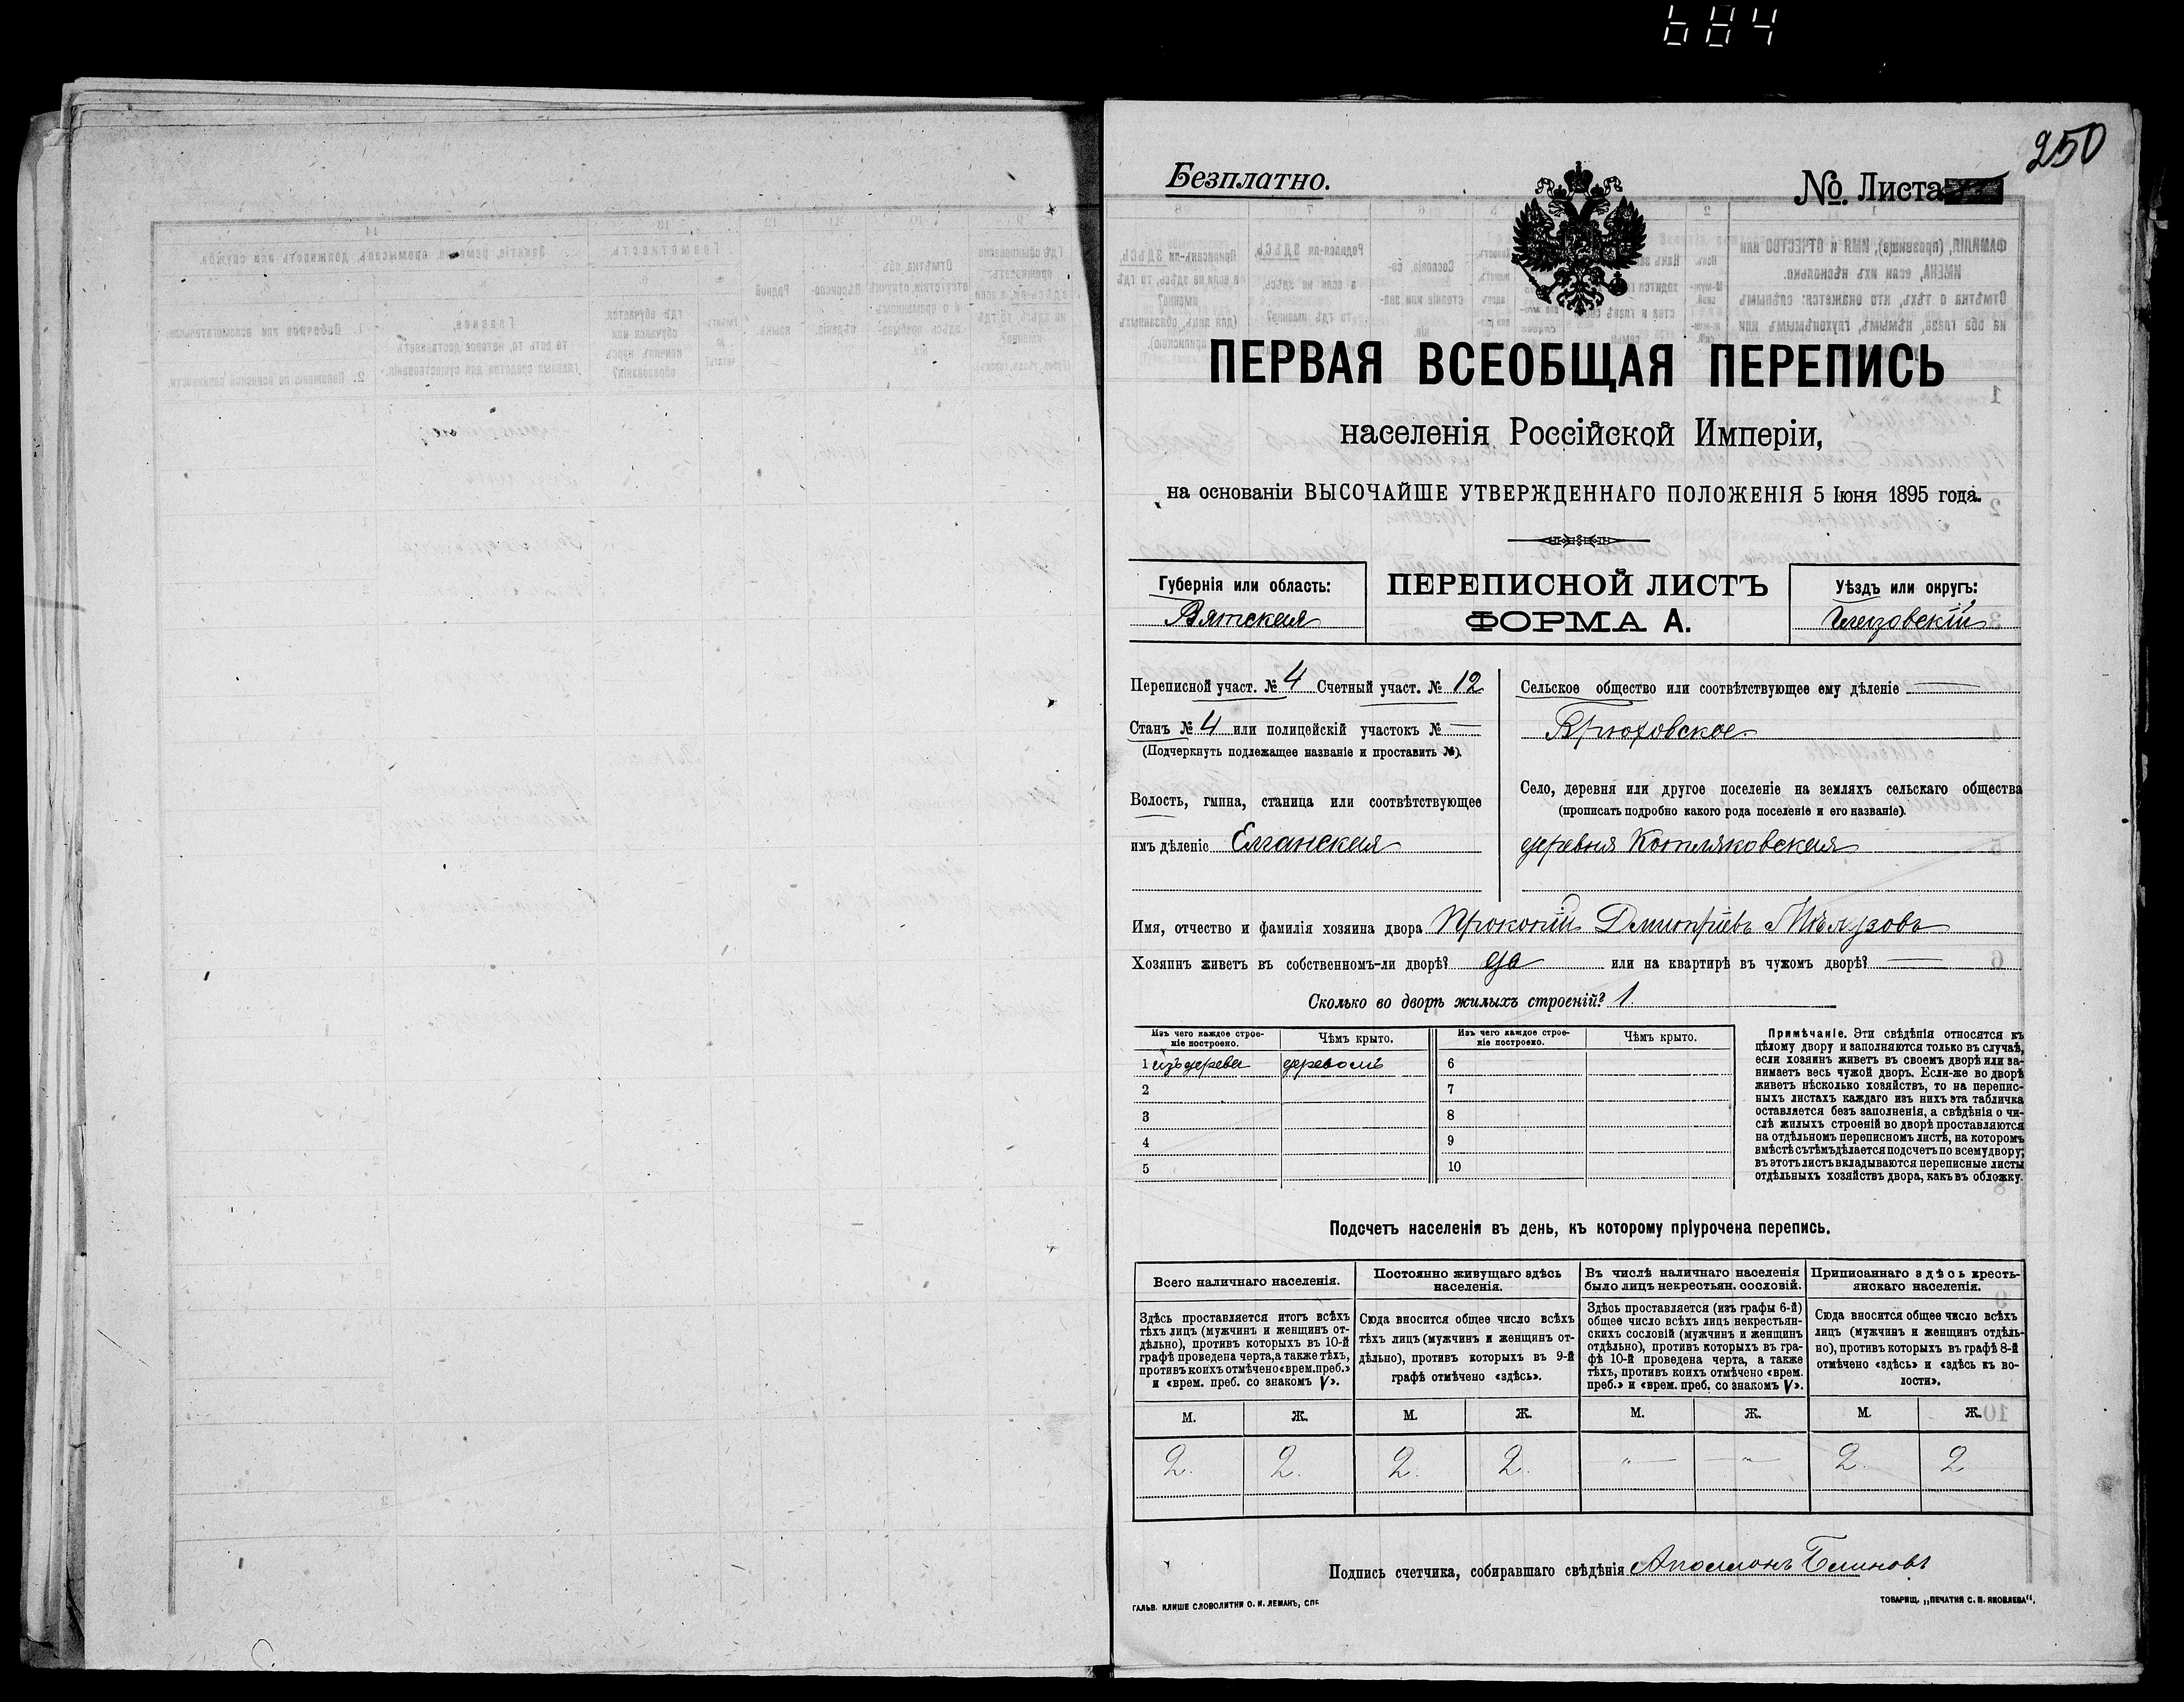 684
250
Безплатно.
№ Листа
ПЕРВАЯ ВСЕОБЩАЯ ПЕРЕПИСЬ
населенія Россійской Имперіи,
на основаніи ВЫСОЧАЙШЕ УТВЕРЖДЕННАГО ПОЛОЖЕНІЯ 5 Іюня 1895 года.
Губернія или область:
Вятская
ПЕРЕПИСНОЙ ЛИСТЪ
ФОРМА А.
Уѣздъ или округъ:
Глазовскій
Переписной участ. № 4 Счетный участ. № 12
Станъ № 4 или полицейскій участокъ № —
(Подчеркнуть подлежащее названіе и проставить №).
Волость, гмина, станица или соотвѣтствующее
имъ дѣленіе Елганская
Сельское общество или соотвѣтствующее ему дѣленіе —
Брюховское
Село, деревня или другое поселеніе на земляхъ сельскаго общества
(прописать подробно какого рода поселеніе и его названіе).
деревня Котляковская
Имя, отчество и фамилія хозяина двора Прокопій Дмитріевъ
Хозяинъ живетъ въ собственномъ-ли дворѣ? да или на квартирѣ въ чужомъ дворѣ? —
Сколько во дворѣ жилыхъ строеній? 1
Изъ чего каждое строе-
ніе построено.
Чѣмъ крыто.
Изъ чего каждое строе-
ніе построено.
Чѣмъ крыто.
1 изъ дерева деревомъ 6
2 7
3 8
4 9
5 10
Примѣчаніе. Эти свѣдѣнія относятся къ
цѣлому двору и заполняются только въ случаѣ,
если хозяинъ живетъ въ своемъ дворѣ или за-
нимаетъ весь чужой дворъ. Если-же во дворѣ
живетъ нѣсколько хозяйствъ, то на перепис-
ныхъ листахъ каждаго изъ нихъ эта табличка
оставляется безъ заполненія, а свѣдѣнія о чи-
слѣ жилыхъ строеній во дворѣ проставляются
на отдѣльномъ переписномъ листѣ, на которомъ
вмѣстѣ съ тѣмъ дѣлается подсчетъ по всему двору;
въ этотъ листъ вкладываются переписные листы
отдѣльныхъ хозяйствъ двора, какъ въ обложку.
Подсчетъ населенія въ день, къ которому пріурочена перепись.
Всего наличнаго населенія.
Здѣсь проставляется итогъ всѣхъ
тѣхъ лицъ (мужчинъ и женщинъ от-
дѣльно), противъ которыхъ въ 10-й
графѣ проведена черта, а также тѣхъ,
противъ коихъ отмѣчено «врем. преб.»
и «врем. преб. со знакомъ V».
Постоянно живущаго здѣсь
населенія.
Сюда вносится общее число всѣхъ
тѣхъ лицъ (мужчинъ и женщинъ от-
дѣльно), противъ которыхъ въ 9-й
графѣ отмѣчено «здѣсь».
Въ числѣ наличнаго населенія
было лицъ некрестьян. сословій.
Здѣсь проставляется (изъ графы 6-й)
общее число всѣхъ лицъ некрестьян-
скихъ сословій (мужчинъ и женщинъ
отдѣльно), противъ которыхъ въ гра-
фѣ 10-й проведена черта, а также
тѣхъ, противъ коихъ отмѣчено «врем.
преб.» и «врем. преб. со знакомъ V».
Приписаннаго здѣсь кресть-
янскаго населенія.
Сюда вносится общее число всѣхъ
лицъ (мужчинъ и женщинъ отдѣль-
но), противъ которыхъ въ графѣ 8-й
отмѣчено «здѣсь» и «здѣсь къ во-
лости».
М. Ж. М. Ж. М. Ж. М. Ж.
2. 2. 2. 2. „ — — „ — 2. 2
Подпись счетчика, собиравшаго свѣдѣнія Аполлонъ Блиновъ
ГАЛЬВ. КЛИШЕ СЛОВОЛИТНИ О. И. ЛЕМАНЪ, СПБ
ТОВАРИЩ. „ПЕЧАТНЯ С. П. ЯКОВЛЕВА".